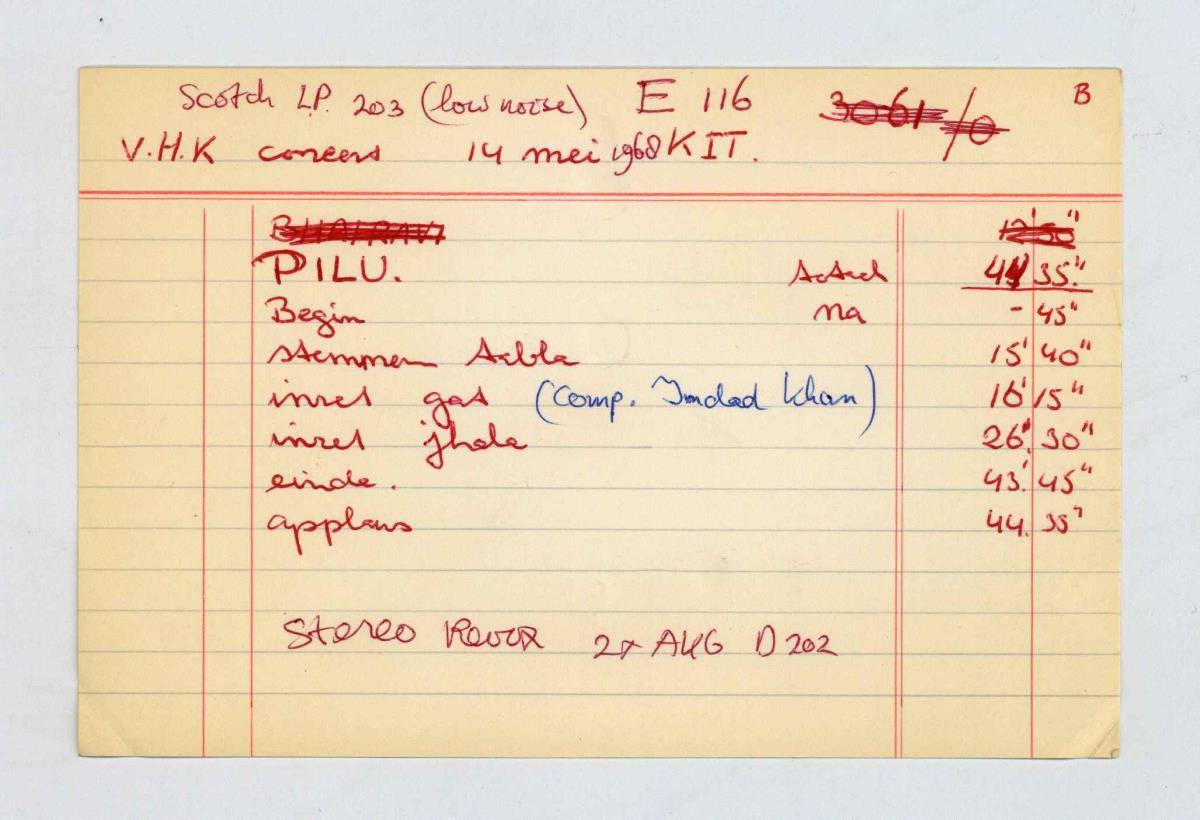 Scotch LP. 203 (low noise) E 116 3061/0 B
V.H.K concers 14 mei 1968 KIT.
BHAIRAVI 12' 50"
PILU. totaal 44 35"
Begin na - 45"
stemmen tabla 15' 40"
inzet gat (Comp. Imdad Khan) 16' 15"
inzet jhala 26' 30"
einde. 43' 45"
applaus 44. 35"
Stereo Revox 2x AKG D 202